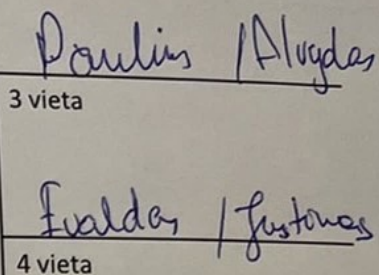 Paulius / Alvydas
3 vieta
Evaldas / Justinas
4 vieta